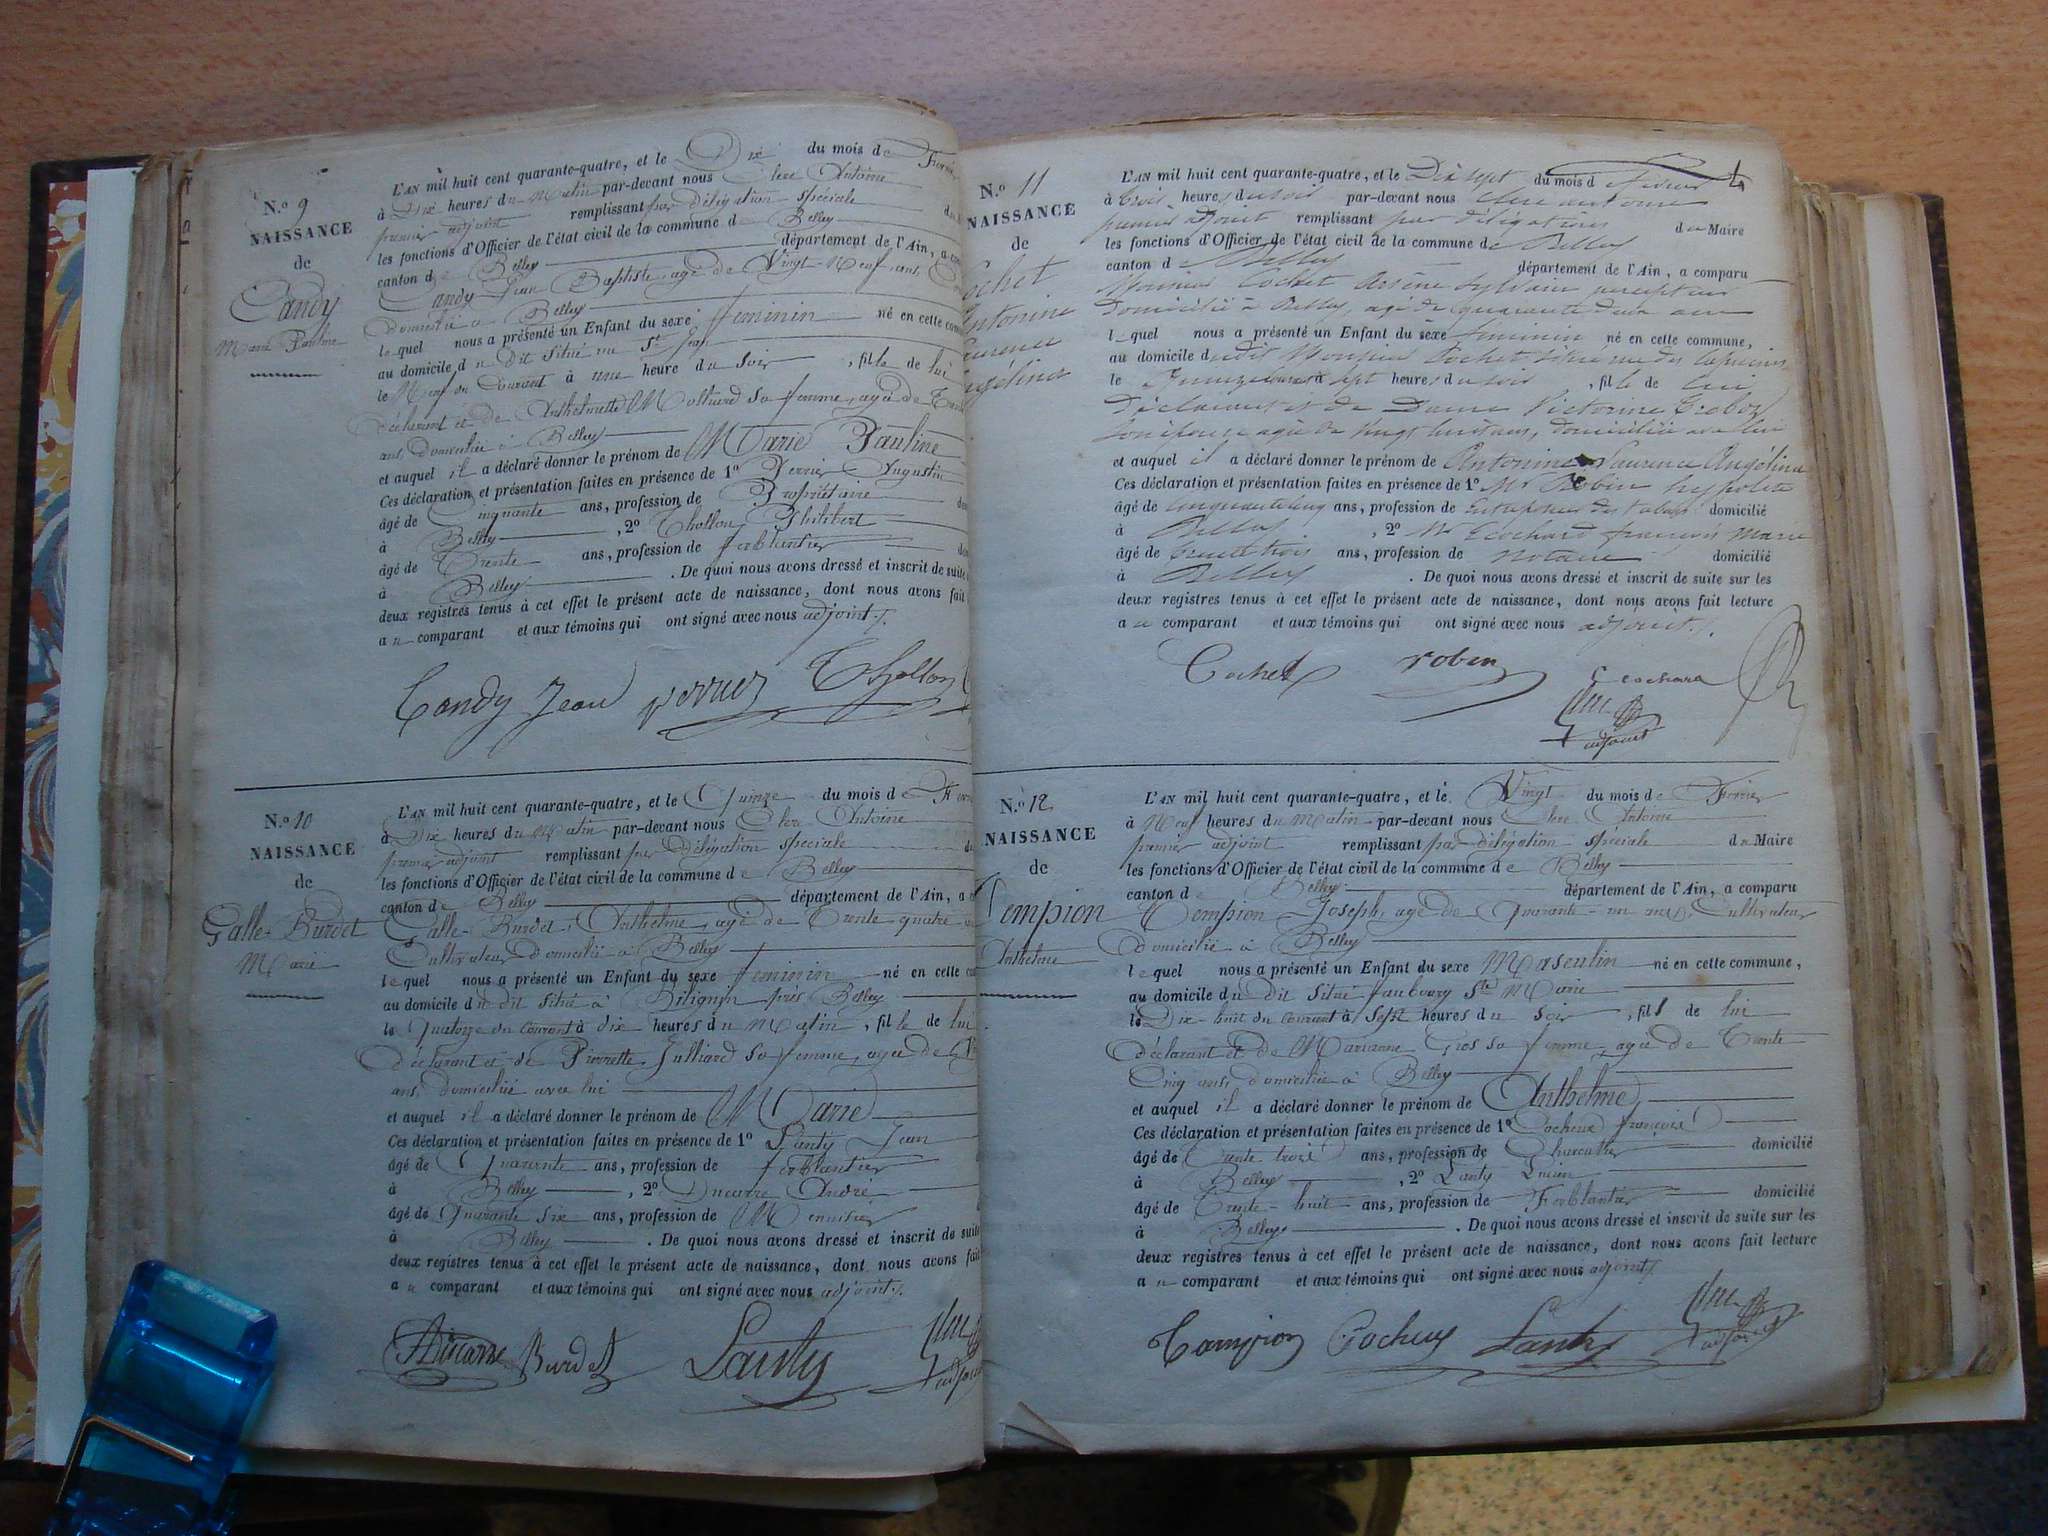 N.o 9
NAISSANCE
de
Candy
Marie Pauline
L'AN mil huit cent quarante-quatre, et le Dix du mois de Février
à Dix heures du Matin par-devant nous Clerc Antoine
premier adjoint remplissant par délégation spéciale
les fonctions d'Officier de l'état civil de la commune de Belley
canton de Belley département de l'Ain, a
Candy Jean Baptiste, agé de Vingt-Neuf ans,
domicilié à Belley
lequel nous a présenté un Enfant du sexe feminin né en cette
au domicile du dit situé rue St Jean
le Neuf du Courant à une heure du Soir, fille de lui
déclarant et de Anthelmette sa femme, agée de
ans, domiciliée à Belley
et auquel il a déclaré donner le prénom de Marie Pauline
Ces déclaration et présentation faites en présence de 1o Perrier Augustin
âgé de Cinquante ans, profession de Propriétaire
à Belley, 2o Thollon Philibert
âgé de Trente ans, profession de ferblantier
à Belley. De quoi nous avons dressé et inscrit de suite
deux registres tenus à cet effet le présent acte de naissance, dont nous avons fait
au comparant et aux témoins qui ont signé avec nous adjoint
Candy Jean perrier Thollon
N.o 10
NAISSANCE
de
Galle-Burdet
Marie
L'AN mil huit cent quarante-quatre, et le Quinze du mois de
à Dix heures du Matin par-devant nous Clerc Antoine
premier adjoint remplissant par délégation spéciale
les fonctions d'Officier de l'état civil de la commune de Belley
canton de Belley département de l'Ain, a
Galle-Burdet Anthelme, agé de Trente quatre
Cultivateur domicilié à Belley
lequel nous a présenté un Enfant du sexe feminin né en cette
au domicile du dit situé à Bilignin près Belley
le Quatorze du courant à dix heures du Matin, fille de lui
déclarant et de Pierrette Julliard sa femme, agée de
ans, domicilié avec lui
et auquel il a déclaré donner le prénom de Marie
Ces déclaration et présentation faites en présence de 1o Lanty Jean
âgé de Quarante ans, profession de ferblantier
à Belley, 2o Ducarre André
âgé de Quarante six ans, profession de Menuisier
à Belley. De quoi nous avons dressé et inscrit de suite
deux registres tenus à cet effet le présent acte de naissance, dont nous avons fait
au comparant et aux témoins qui ont signé avec nous adjoint
Ducarre Burdet Lanty
N.o 11
NAISSANCE
de
Cochet
Antonine
Laurence
Angélina
L'AN mil huit cent quarante-quatre, et le Dix sept du mois de février
à trois heures du soir par-devant nous Clerc antoine
premier adjoint remplissant par délégation du Maire
les fonctions d'Officier de l'état civil de la commune de Belley
canton de Belley département de l'Ain, a comparu
Monsieur Cochet Arsène Sylvain percepteur
domicilié à Belley, agé de quarante deux ans
lequel nous a présenté un Enfant du sexe feminin né en cette commune,
au domicile dudit Monsieur Cochet situé rue des Capucins
le Quinze courant à sept heures du soir, fille de lui
déclarant et de Dame Victorine
son épouse agée de vingt huit ans, domiciliée avec lui
et auquel il a déclaré donner le prénom de Antonine Laurence Angélina
Ces déclaration et présentation faites en présence de 1o Mr Robin hypolite
âgé de cinquante cinq ans, profession de Entreposeur des tabacs domicilié
à Belley, 2o Mr Cochard françois Marie
âgé de trente trois ans, profession de Notaire domicilié
à Belley. De quoi nous avons dressé et inscrit de suite sur les
deux registres tenus à cet effet le présent acte de naissance, dont nous avons fait lecture
au comparant et aux témoins qui ont signé avec nous adjoint
Cochet robin Cochard
adjoint
N.o 12
NAISSANCE
de
Tempion
Anthelme
L'AN mil huit cent quarante-quatre, et le Vingt du mois de Février
à Neuf heures du Matin par-devant nous Clerc Antoine
premier adjoint remplissant par délégation spéciale du Maire
les fonctions d'Officier de l'état civil de la commune de Belley
canton de Belley département de l'Ain, a comparu
Tempion Joseph, agé de Quarante-un ans, Cultivateur
domicilié à Belley
lequel nous a présenté un Enfant du sexe Masculin né en cette commune,
au domicile du dit situé faubourg Ste Marie
le Dix-huit du courant à Sept heures du soir, fils de lui
déclarant et de Marianne Gros sa femme, agée de Trente
Cinq ans, domiciliée à Belley
et auquel il a déclaré donner le prénom de Anthelme
Ces déclaration et présentation faites en présence de 1o Cocheux françois
âgé de Trente trois ans, profession de Charcutier domicilié
à Belley, 2o Lanty Lucien
âgé de Trente-huit ans, profession de Ferblantier domicilié
à Belley. De quoi nous avons dressé et inscrit de suite sur les
deux registres tenus à cet effet le présent acte de naissance, dont nous avons fait lecture
au comparant et aux témoins qui ont signé avec nous adjoint
Tampion Cocheux Lanty adjoint